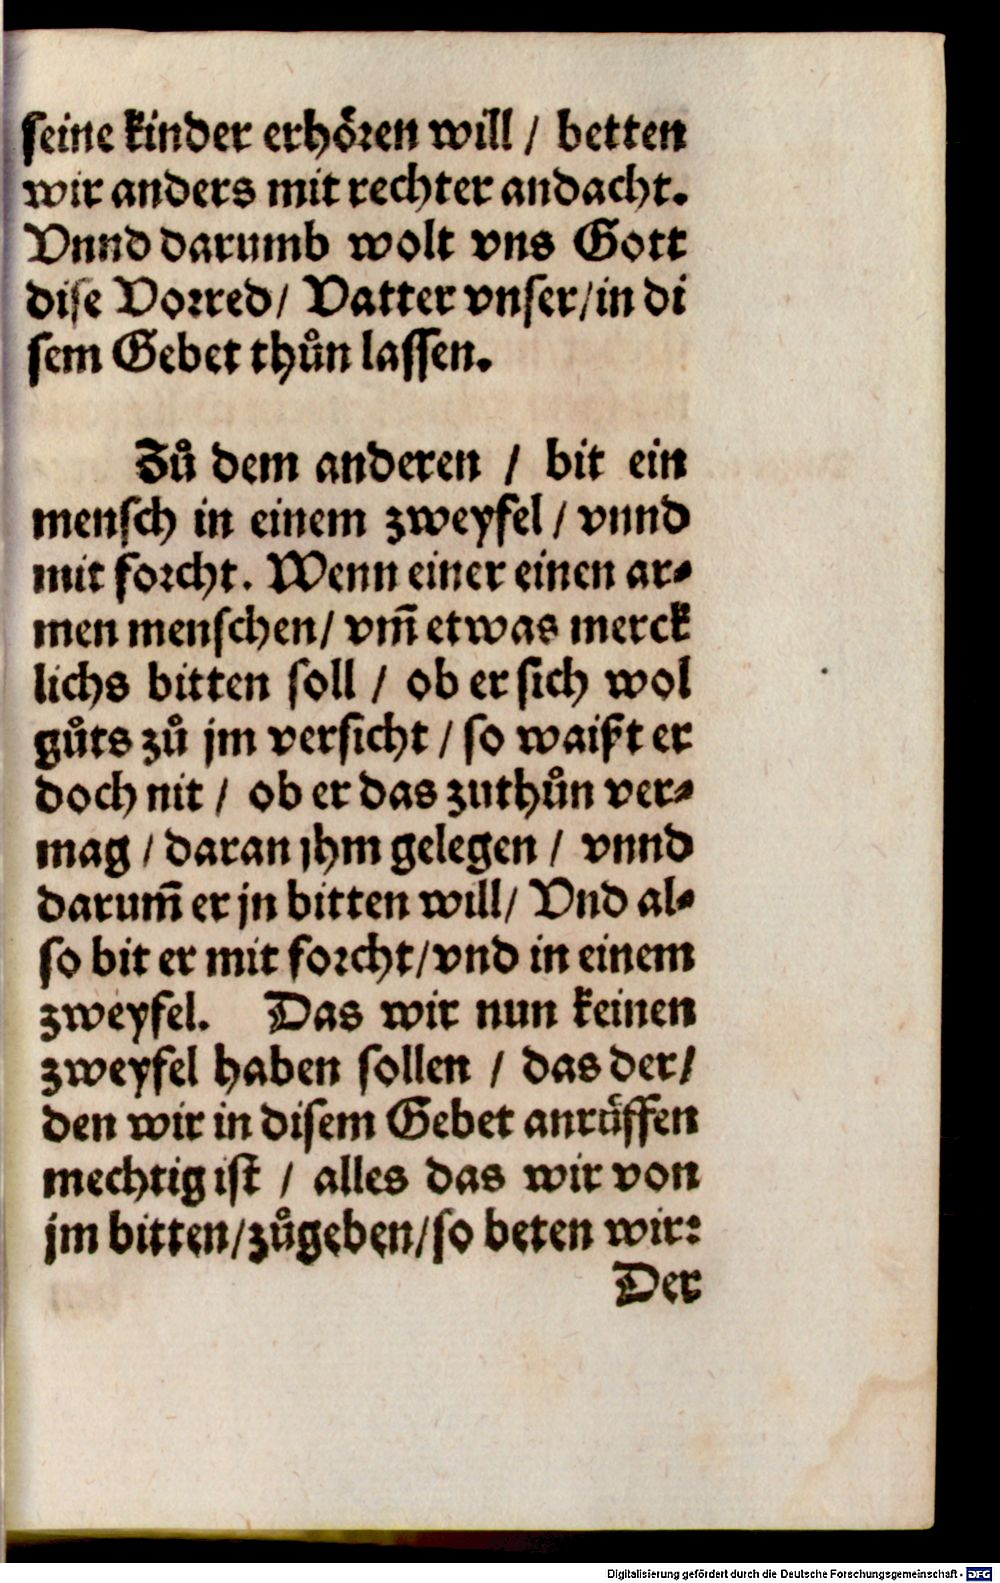 seine kinder erhören will / betten
wir anders mit rechter andacht.
Vnnd darumb wolt vns Gott
dise Vorred/ Vatter vnser/in di
sem Gebet thůn lassen.
Zů dem anderen / bit ein
mensch in einem zweyfel / vnnd
mit forcht. Wenn einer einen ar⸗
men menschen/ vm̃ etwas merck
lichs bitten soll / ob er sich wol
gůts zů jm versicht / so waißt er
doch nit / ob er das zuthůn ver⸗
mag / daran jhm gelegen / vnnd
darum̃ er jn bitten will/ Vnd al⸗
so bit er mit forcht/vnd in einem
zweyfel. Das wir nun keinen
zweyfel haben sollen / das der/
den wir in disem Gebet anrüffen
mechtig ist / alles das wir von
jm bitten/zůgeben/so beten wir:
Der
Digitalisierung gefördert durch die Deutsche Forschungsgemeinschaft - DFG